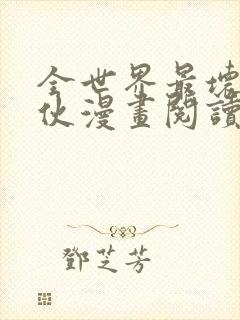 全世界最壞
伙漫畫閱讀
鄧芝芳